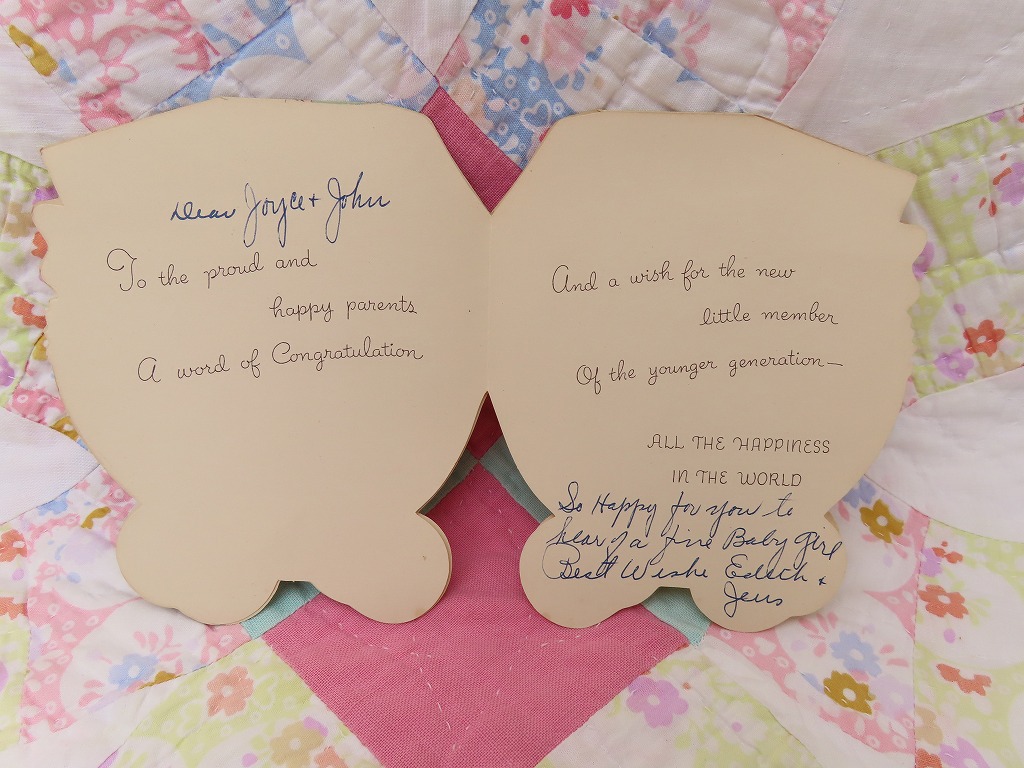 Dear Joyce + John
To the proud and
happy parents
A word of Congratulation
And a wish for the new
little member
Of the younger generation—
ALL THE HAPPINESS
IN THE WORLD
So Happy for you to
hear of a fine Baby Girl
Best Wishe Edith +
Jens